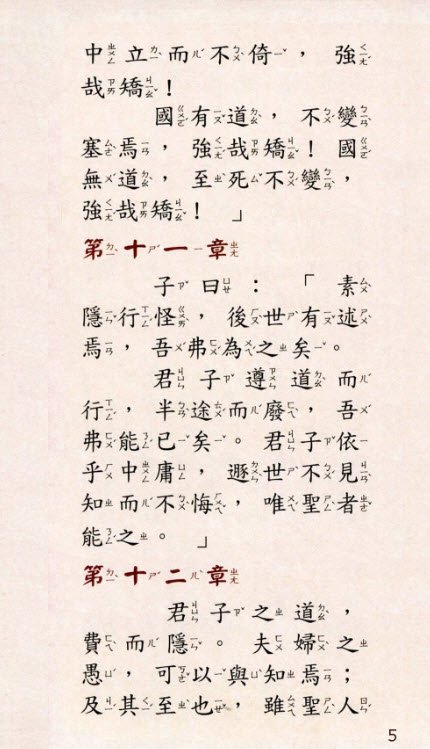 中立而不倚，強
哉矯！
國有道，不變
塞焉，強哉矯！國
無道，至死不變，
強哉矯！」
第十一章
子曰：「素
隱行怪，後世有述
焉，吾弗為之矣。
君子遵道而
行，半途而廢，吾
弗能已矣。君子依
乎中庸，遯世不見
知而不悔，唯聖者
能之。」
第十二章
君子之道，
費而隱。夫婦之
愚，可以與知焉；
及其至也，雖聖人
5